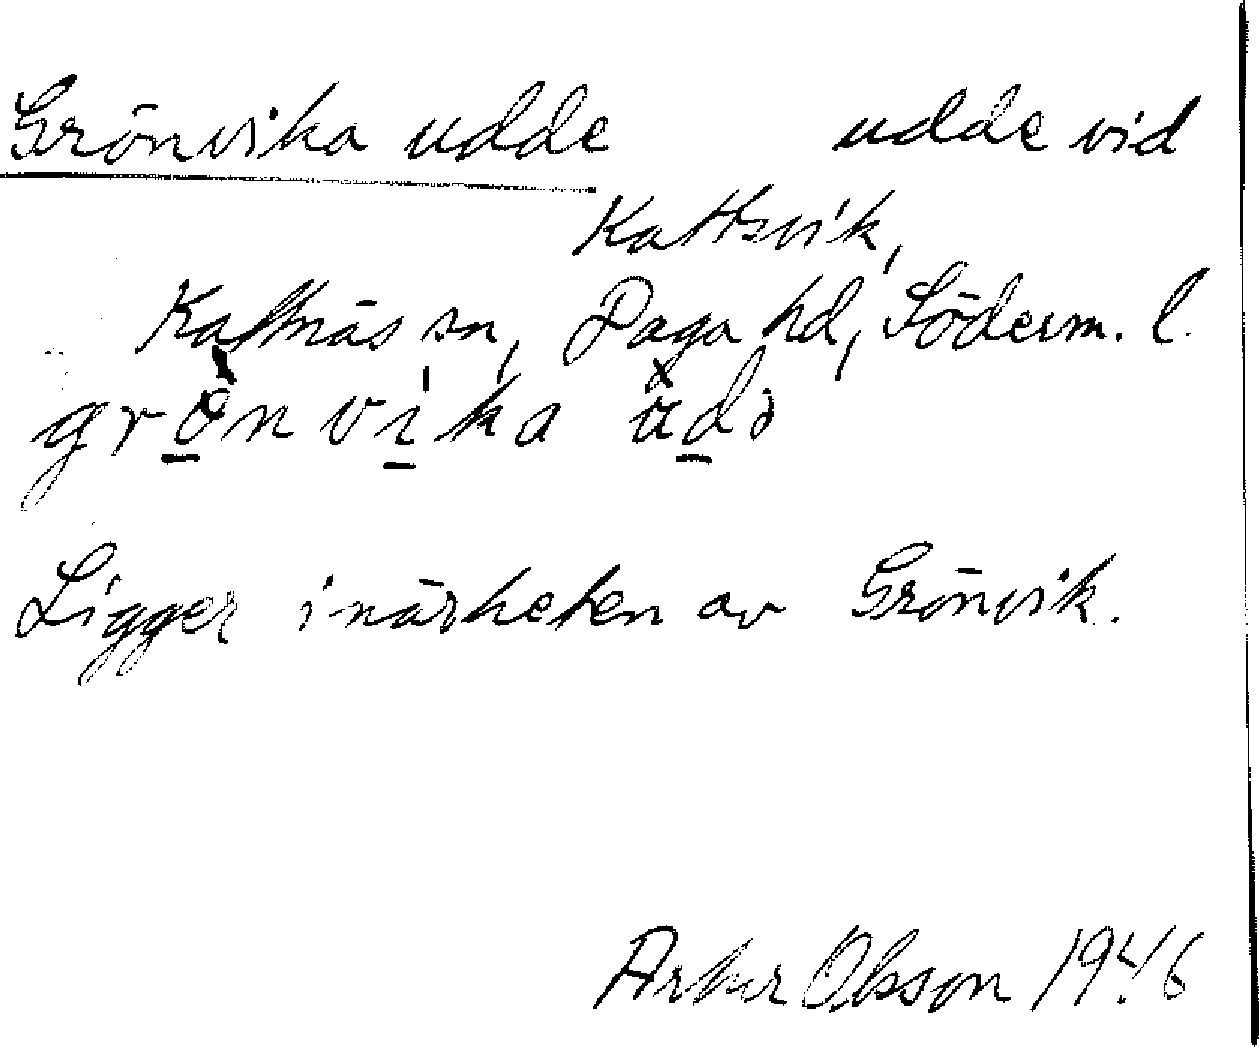 Grönvika udde udde vid
Kattsvik,
Kattnäs sn, Daga hd, Söderm. l.
grönvika ud
Ligger i närheten av Grönvik.
Artur Olsson 1946